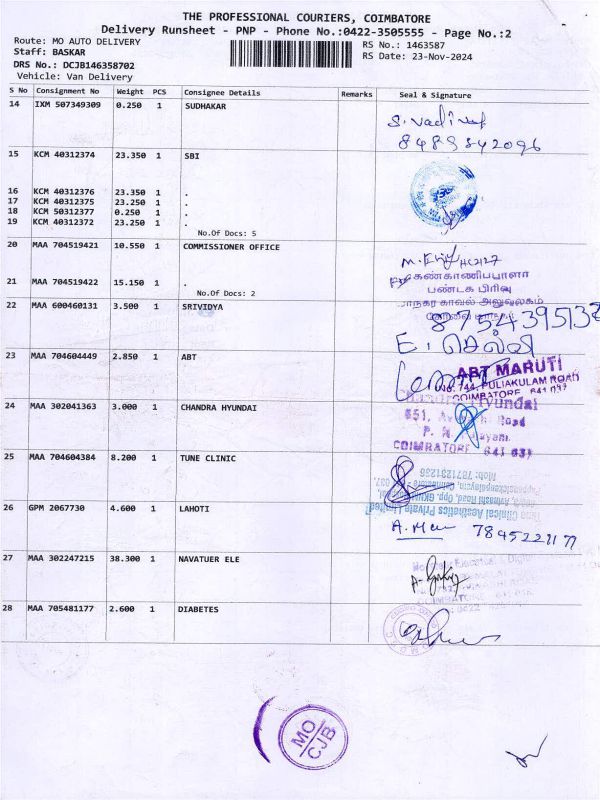 THE PROFESSIONAL COURIERS, COIMBATORE
Delivery Runsheet - PNP - Phone No.:0422-3505555 - Page No.:2
Route: MO AUTO DELIVERY
Staff: BASKAR
DRS No.: DCJB146358702
Vehicle: Van Delivery
RS No.: 1463587
RS Date: 23-Nov-2024
S No Consignment No Weight PCS Consignee Details Remarks Seal & Signature
14 IXM 507349309 0.250 1 SUDHAKAR
8489842096
15 KCM 40312374 23.350 1 SBI
16 KCM 40312376 23.350 1 .
17 KCM 40312375 23.250 1 .
18 KCM 50312377 0.250 1 .
19 KCM 40312372 23.250 1 .
No.Of Docs: 5
20 MAA 704519421 10.550 1 COMMISSIONER OFFICE
கண்காணிப்பாளர்
பண்டக பிரிவு
மாநகர காவல் அலுவலகம்
21 MAA 704519422 15.150 1 .
No.Of Docs: 2
22 MAA 600460131 3.500 1 SRIVIDYA
8754395132
E. செல்வி
23 MAA 704604449 2.850 1 ABT
ABT MARUTI
No. 744, PULIAKULAM ROAD
COIMBATORE - 641 037
24 MAA 302041363 3.000 1 CHANDRA HYUNDAI
Hyundai
Road
COIMBATORE 641 037
25 MAA 704604384 8.200 1 TUNE CLINIC
Tune Clinical Aesthetics Private Limited
Mob: 7871231236
26 GPM 2067730 4.600 1 LAHOTI
7845221177
27 MAA 302247215 38.300 1 NAVATUER ELE
28 MAA 705481177 2.600 1 DIABETES
MO
CJB